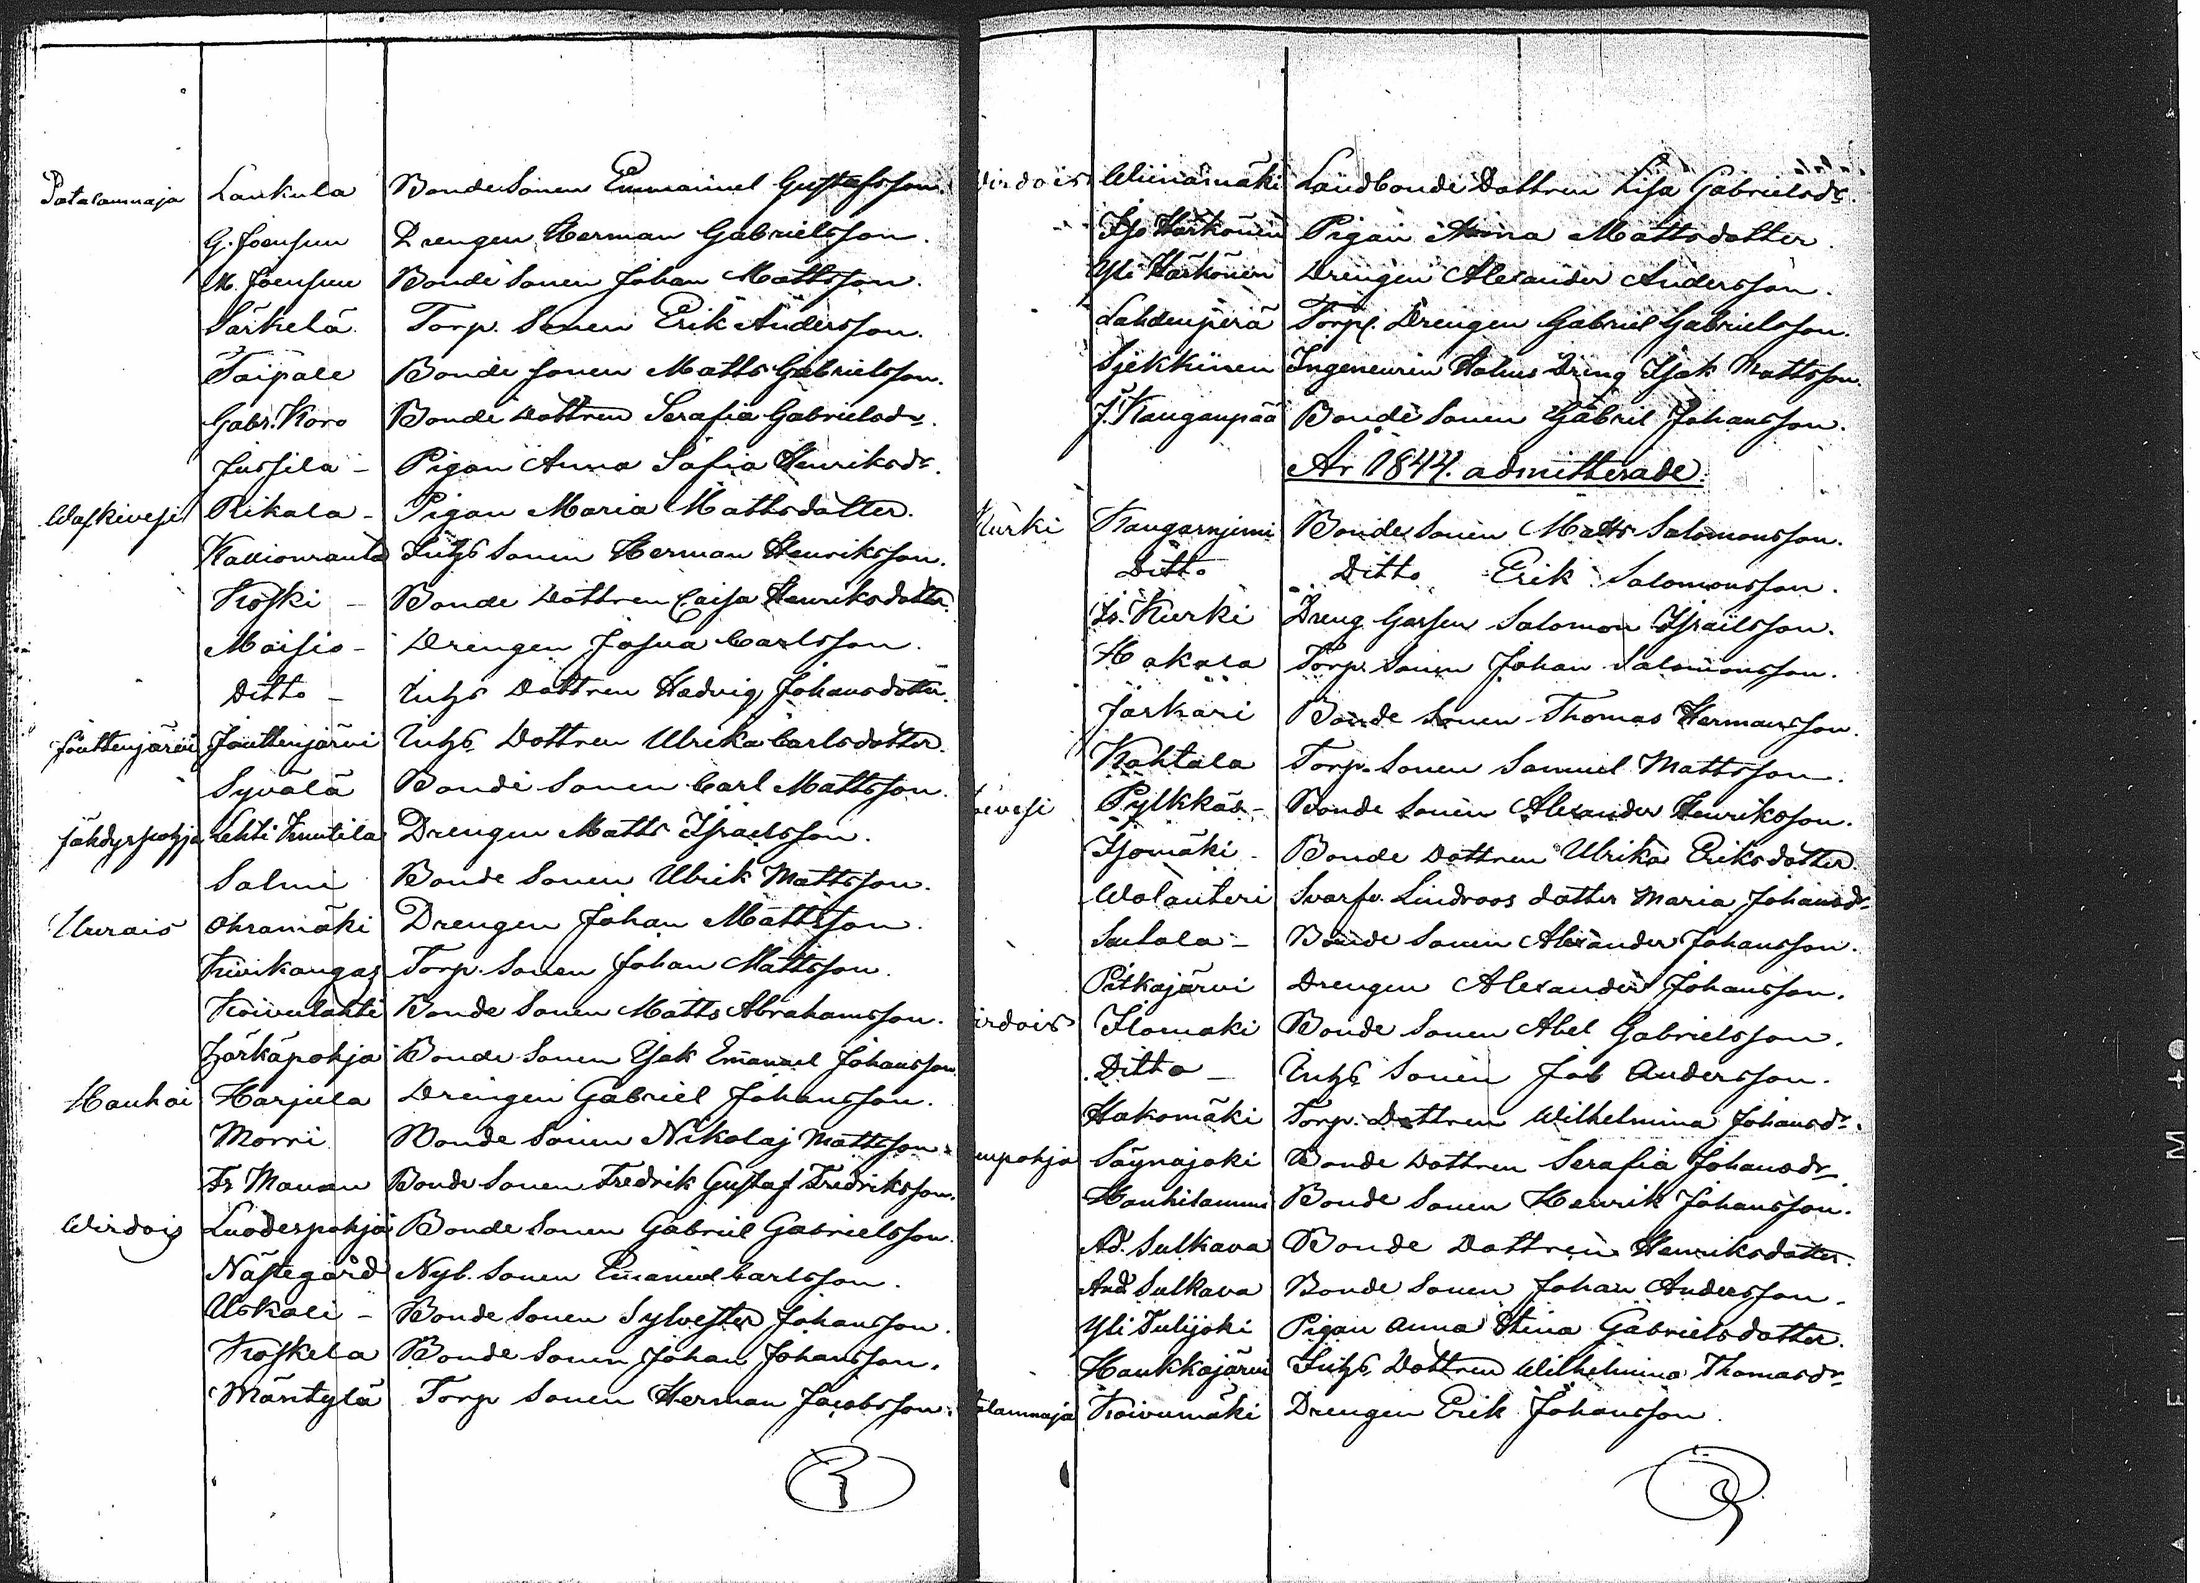 Patalamnaja Laukula Bonde Sonen Emmanuel Gustafsson.
G. Joensuu Drengen Herman Gabrielsson.
M. Joensuu Bonde Sonen Johan Mattsson.
Särkelä Torp. Sonen Erik Andersson.
Taipale Bonde Sonen Matts Gabrielsson.
Gabr. Koro Bonde Dottren Serafia Gabrielsdr.
Jussila - Pigan Anna Sofia Henriksdr.
Waskivesi Rikala - Pigan Maria Mattsdotter.
Kallionranta Inhs Sonen Herman Henriksson.
Koski - Bonde Dottren Caisa Henriksdotter.
Moisio - Drengen Josua Carlsson.
Ditto - Inhs Dottren Hedvig Johansdotter.
Jäuttenjärvi Jäuttenjärvi Inhs Dottren Ulrika Carlsdotter.
Syvälä Bonde Sonen Carl Mattsson.
Jähdyspohja Lehti Knutila Drengen Matts Israelsson.
Salmi Bonde Sonen Ulrik Mattsson.
Uurais Ohramäki Drengen Johan Mattsson.
Kivikangas Torp. Sonen Johan Mattsson.
Koivulahti Bonde Sonen Matts Abrahamsson.
Härkäpohja Bonde Sonen Isak Emanuel Johansson.
Hauhoi Harjula Drengen Gabriel Johansson.
Morri Bonde Sonen Nikolaj Mattsson.
Fr Manan Bonde Sonen Fredrik Gustaf Fredriksson.
Wirdois Luodespohja Bonde Sonen Gabriel Gabrielsson.
Nästegård Nyb. Sonen Emanuel Carlsson.
Uskali - Bonde Sonen Sylvester Johansson.
Koskela Bonde Sonen Johan Johansson.
Mäntylä Torp Sonen Herman Jacobsson.
Virdois Wiinamäki Landbonde Dottren Lisa Gabrielsdr.
Iso Härkönen Pigan Anna Mattsdotter.
Yli Härkönen Drengen Alexander Andersson.
Lahdenperä Torp. Drengen Gabriel Gabrielsson.
Ingeneuren Dreng Isak Mattsson.
J. Kangaspää Bonde Sonen Gabriel Johansson.
Ar 1844. admitterade.
Kurki Kangarnjemi Bonde Sonen Matts Salomonsson.
Ditto Ditto Erik Salomonsson.
Is. Kurki Dreng Gossen Salomon Israelsson.
Hakala Torp. Sonen Johan Salomonsson.
Järkäri Bonde Sonen Thomas Hermansson.
Kahtala Torp. Sonen Samuel Mattsson.
ivesi Pylkkäs - Bonde Sonen Alexander Henriksson.
Isomäki - Bonde Dottren Ulrika Eriksdotter.
Wolanteri Svarfv. Lindroos dotter Maria Johansdr
Sulala - Bonde Sonen Alexander Johansson.
Pitkäjärvi Drengen Alexander Johansson.
irdois Ilomäki Bonde Sonen Abel Gabrielsson.
Ditto - Inhs Sonen Job Andersson.
Hakomäki Torp. Dottren Wilhelmina Johansdr.
npohja Säynäjoki Bonde Dottren Serafia Johansdr.
Hauhilammi Bonde Sonen Henrik Johansson.
Ad. Sulkava Bonde Dottren Henriksdotter.
And. Sulkava Bonde Sonen Johan Andersson.
Yli Tulijoki Pigan Anna Stina Gabrielsdotter.
Haukkajärvi Inhs Dottren Wilhelmina Thomasdr
alamnaja Koivumäki Drengen Erik Johansson.